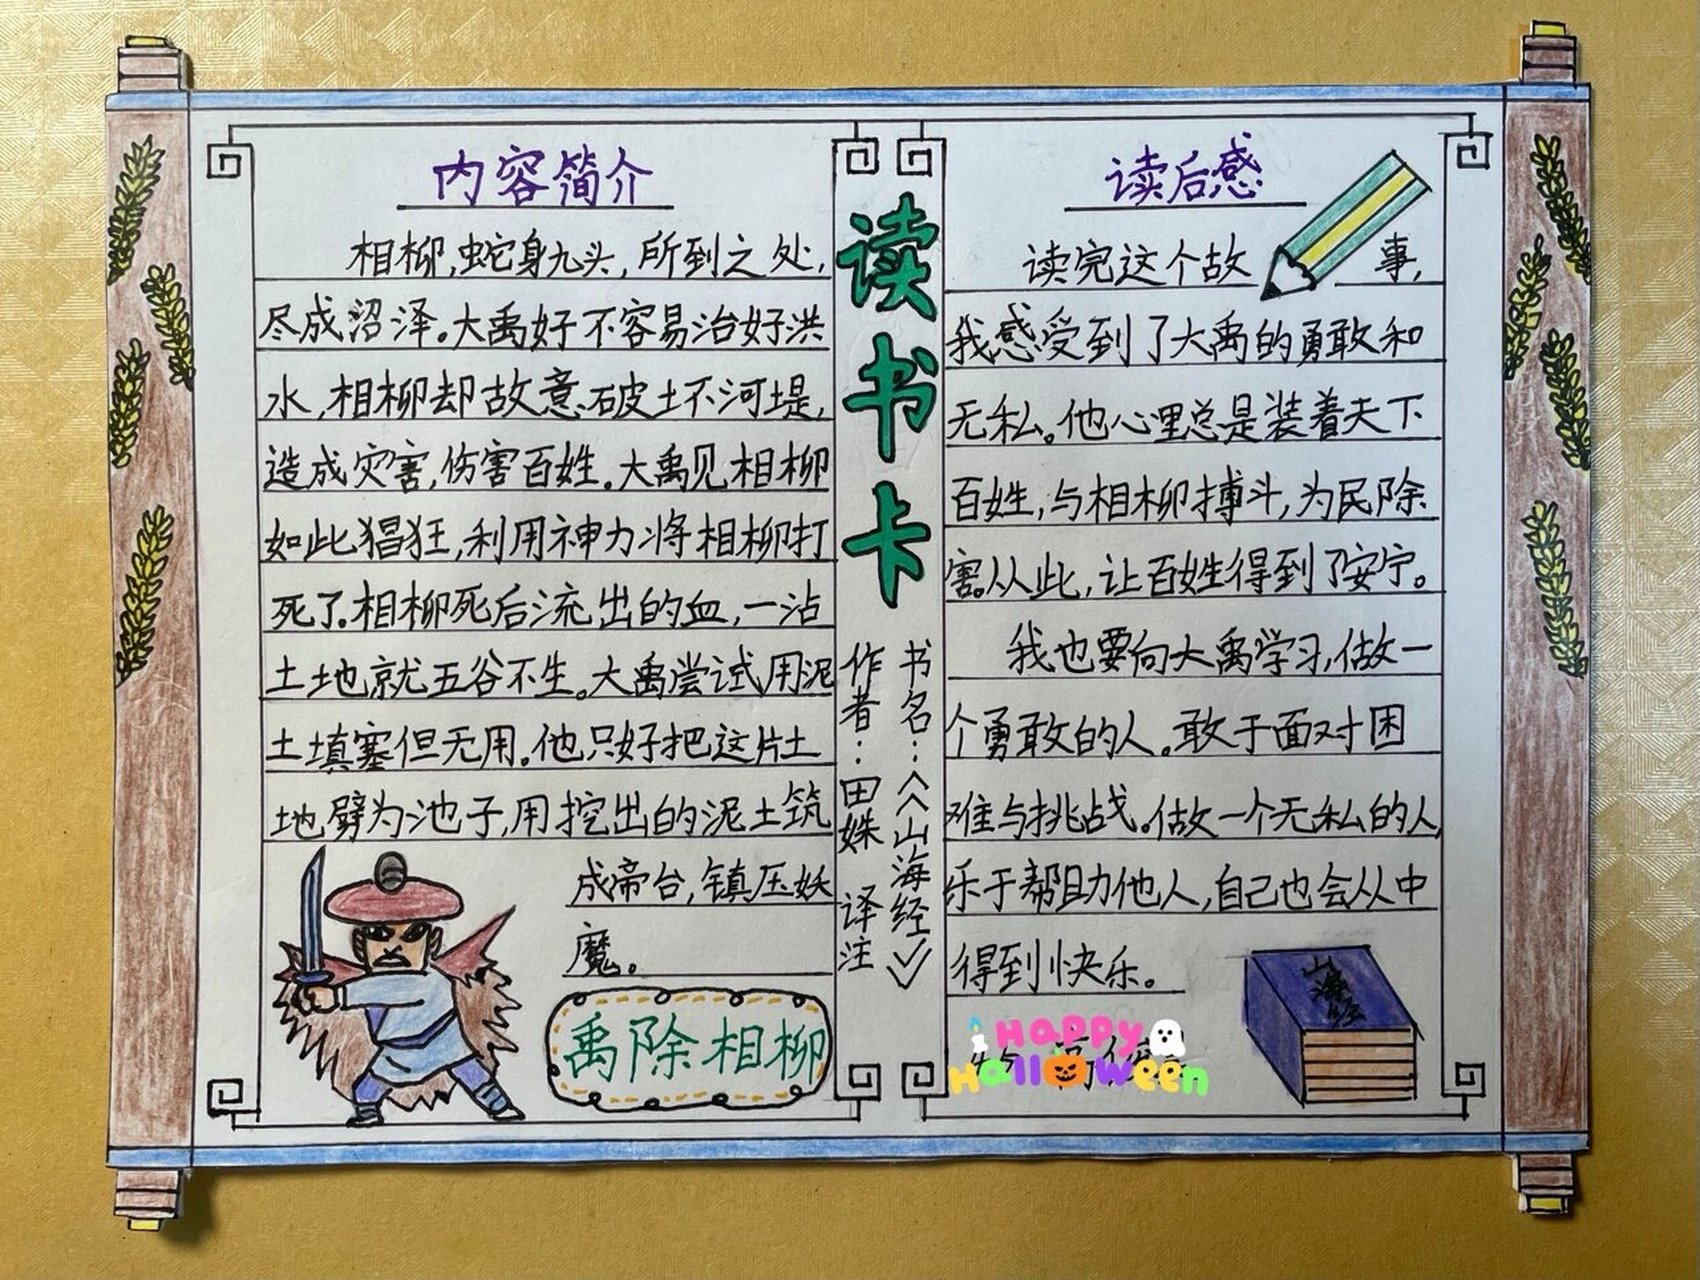 内容简介
相柳,蛇身九头,所到之处,
尽成沼泽。大禹好不容易治好洪
水,相柳却故意破土坏河堤,
造成灾害,伤害百姓。大禹见相柳
如此猖狂,利用神力将相柳打
死了。相柳死后流出的血,一沾
土地就五谷不生。大禹尝试用泥
土填塞但无用。他只好把这片土
地劈为池子,用挖出的泥土筑
成帝台,镇压妖
魔。
禹除相柳
读书卡
书名:《山海经》
作者:田姝 译注
读后感
读完这个故事,
我感受到了大禹的勇敢和
无私。他心里总是装着天下
百姓,与相柳搏斗,为民除
害。从此,让百姓得到了安宁。
我也要向大禹学习,做一
个勇敢的人。敢于面对困
难与挑战。做一个无私的人,
乐于帮助他人,自己也会从中
得到快乐。
Happy
Halloween
山海经